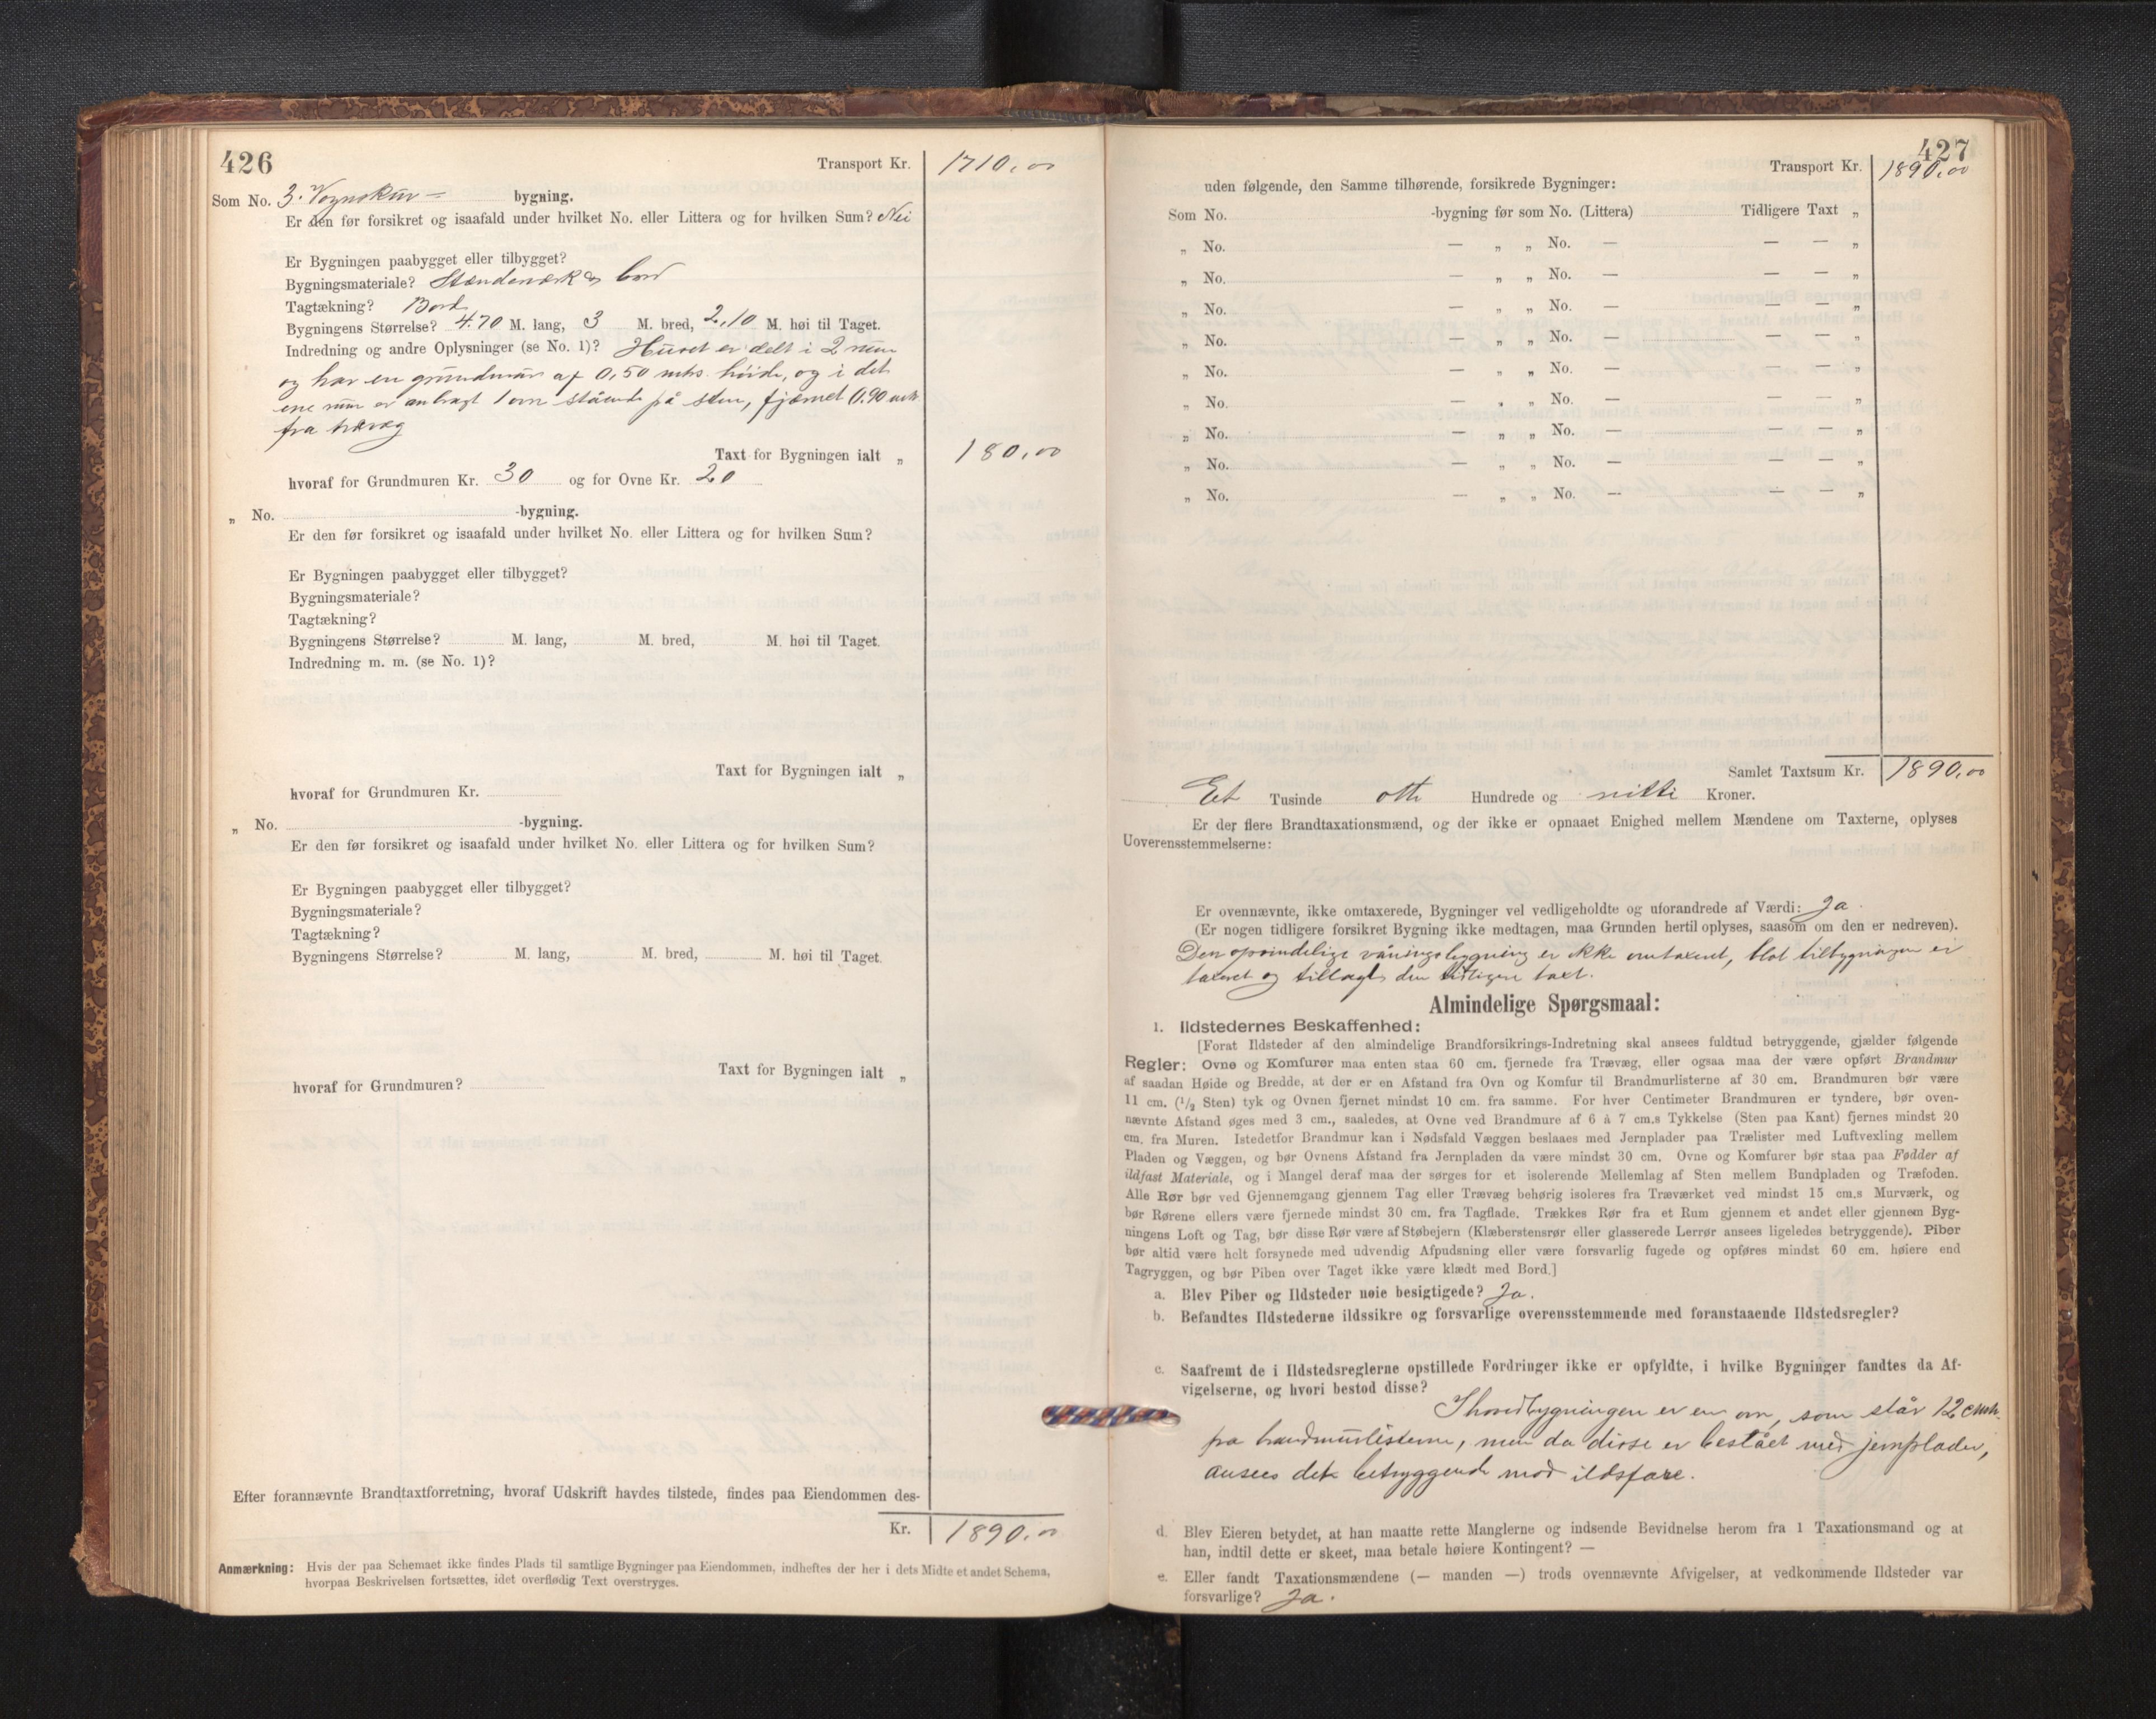 426
Transport Kr. 1710,00
Som No. 3. Vognskur — bygning.
Er den før forsikret og isaafald under hvilket No. eller Littera og for hvilken Sum? Nei
Er Bygningen paabygget eller tilbygget?
Bygningsmateriale? Stenderværk & bord
Tagtækning? Bord
Bygningens Størrelse? 4.70 M. lang, 3 M. bred, 2,10 M. høi til Taget.
Indredning og andre Oplysninger (se No. 1)? Huset er delt i 2 rum
og har en grundmur af 0,50 mtrs. høide, og i det
ene rum er anbragt 1 ovn stående på sten, fjernet 0.90 mtr.
fra trævæg
Taxt for Bygningen ialt „ 180,00
hvoraf for Grundmuren Kr. 30 og for Ovne Kr. 20
„ No. -bygning.
Er den før forsikret og isaafald under hvilket No. eller Littera og for hvilken Sum?
Er Bygningen paabygget eller tilbygget?
Bygningsmateriale?
Tagtækning?
Bygningens Størrelse? M. lang, M. bred, M. høi til Taget.
Indredning m. m. (se No. 1)?
Taxt for Bygningen ialt „
hvoraf for Grundmuren Kr.
„ No. -bygning.
Er den før forsikret og isaafald under hvilket No. eller Littera og for hvilken Sum?
Er Bygningen paabygget eller tilbygget?
Bygningsmateriale?
Tagtækning?
Bygningens Størrelse? M. lang, M. bred, M. høi til Taget.
Taxt for Bygningen ialt „
hvoraf for Grundmuren?
Efter forannævnte Brandtaxtforretning, hvoraf Udskrift havdes tilstede, findes paa Eiendommen des-
Kr. 1890,00
Anmærkning: Hvis der paa Schemaet ikke findes Plads til samtlige Bygninger paa Eiendommen, indheftes der her i dets Midte et andet Schema,
hvorpaa Beskrivelsen fortsættes, idet overflødig Text overstryges.
427
Transport Kr. 1890,00
uden følgende, den Samme tilhørende, forsikrede Bygninger:
Som No. -bygning før som No. (Littera) Tidligere Taxt „
„ No. — „ „ No. — — — „
„ No. — „ „ No. — — — „
„ No. — „ „ No. — — — „
„ No. — „ „ No. — — — „
„ No. — „ „ No. — — — „
„ No. — „ „ No. — — — „
„ No. — „ „ No. — — — „
„ No. — „ „ No. — — — „
„ No. — „ „ No. — — — „
Samlet Taxtsum Kr. 1890,00
Et Tusinde otte Hundrede og nitti Kroner.
Er der flere Brandtaxationsmænd, og der ikke er opnaaet Enighed mellem Mændene om Taxterne, oplyses
Uoverensstemmelserne:
Er ovennævnte, ikke omtaxerede, Bygninger vel vedligeholdte og uforandrede af Værdi: Ja.
(Er nogen tidligere forsikret Bygning ikke medtagen, maa Grunden hertil oplyses, saasom om den er nedreven).
Den oprindelige våningsbygning er ikke omtaxeret, blot tilbygningen er
taxeret og tillagt den tidligere taxt.
Almindelige Spørgsmaal:
1. Ildstedernes Beskaffenhed:
[Forat Ildsteder af den almindelige Brandforsikrings-Indretning skal ansees fuldtud betryggende, gjælder følgende
Regler: Ovne og Komfurer maa enten staa 60 cm. fjernede fra Trævæg, eller ogsaa maa der være opført Brandmur
af saadan Høide og Bredde, at der er en Afstand fra Ovn og Komfur til Brandmurlisterne af 30 cm. Brandmuren bør være
11 cm. (1/2 Sten) tyk og Ovnen fjernet mindst 10 cm. fra samme. For hver Centimeter Brandmuren er tyndere, bør oven-
nævnte Afstand øges med 3 cm., saaledes, at Ovne ved Brandmure af 6 à 7 cm.s Tykkelse (Sten paa Kant) fjernes mindst 20
cm. fra Muren. Istedetfor Brandmur kan i Nødsfald Væggen beslaaes med Jernplader paa Trælister med Luftvexling mellem
Pladen og Væggen, og bør Ovnens Afstand fra Jernpladen da være mindst 30 cm. Ovne og Komfurer bør staa paa Fødder af
ildfast Materiale, og i Mangel deraf maa der sørges for et isolerende Mellemlag af Sten mellem Bundpladen og Træfoden.
Alle Rør bør ved Gjennemgang gjennem Tag eller Trævæg behørig isoleres fra Træværket ved mindst 15 cm.s Murværk, og
bør Rørene ellers være fjernede mindst 30 cm. fra Tagflade. Trækkes Rør fra et Rum gjennem et andet eller gjennem Byg-
ningens Loft og Tag, bør disse Rør være af Støbejern (Klæberstensrør eller glasserede Lerrør ansees ligeledes betryggende). Piber
bør altid være helt forsynede med udvendig Afpudsning eller være forsvarlig fugede og opføres mindst 60 cm. høiere end
Tagryggen, og bør Piben over Taget ikke være klædt med Bord.]
a. Blev Piber og Ildsteder nøie besigtigede? Ja.
b. Befandtes Ildstederne ildssikre og forsvarlige overensstemmende med foranstaaende Ildstedsregler?
c. Saafremt de i Ildstedsreglerne opstillede Fordringer ikke er opfyldte, i hvilke Bygninger fandtes da Af-
vigelserne, og hvori bestod disse?
I hovedbygningen er en ovn, som står 12 cmtr.
fra brandmurlisterne, men da disse er beslåét med jernplader,
ansees dete betryggende mod ildsfare.
d. Blev Eieren betydet, at han maatte rette Manglerne og indsende Bevidnelse herom fra 1 Taxationsmand og at
han, indtil dette er skeet, maa betale høiere Kontingent? —
e. Eller fandt Taxationsmændene (— manden —) trods ovennævnte Afvigelser, at vedkommende Ildsteder var
forsvarlige? Ja.